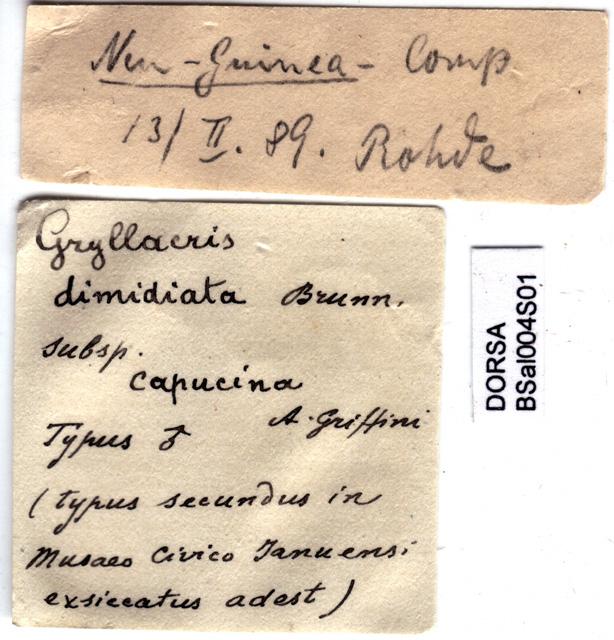 Neu-Guinea- Comp
13/II. 89. Rohde
Gryllacris
dimidiata Brunn.
subsp.
capucina
A. Griffini
Typus ♂
(typus secundus in
Musaeo Civico Januensi
exsiccatus adest)
DORSA
BSal004S01